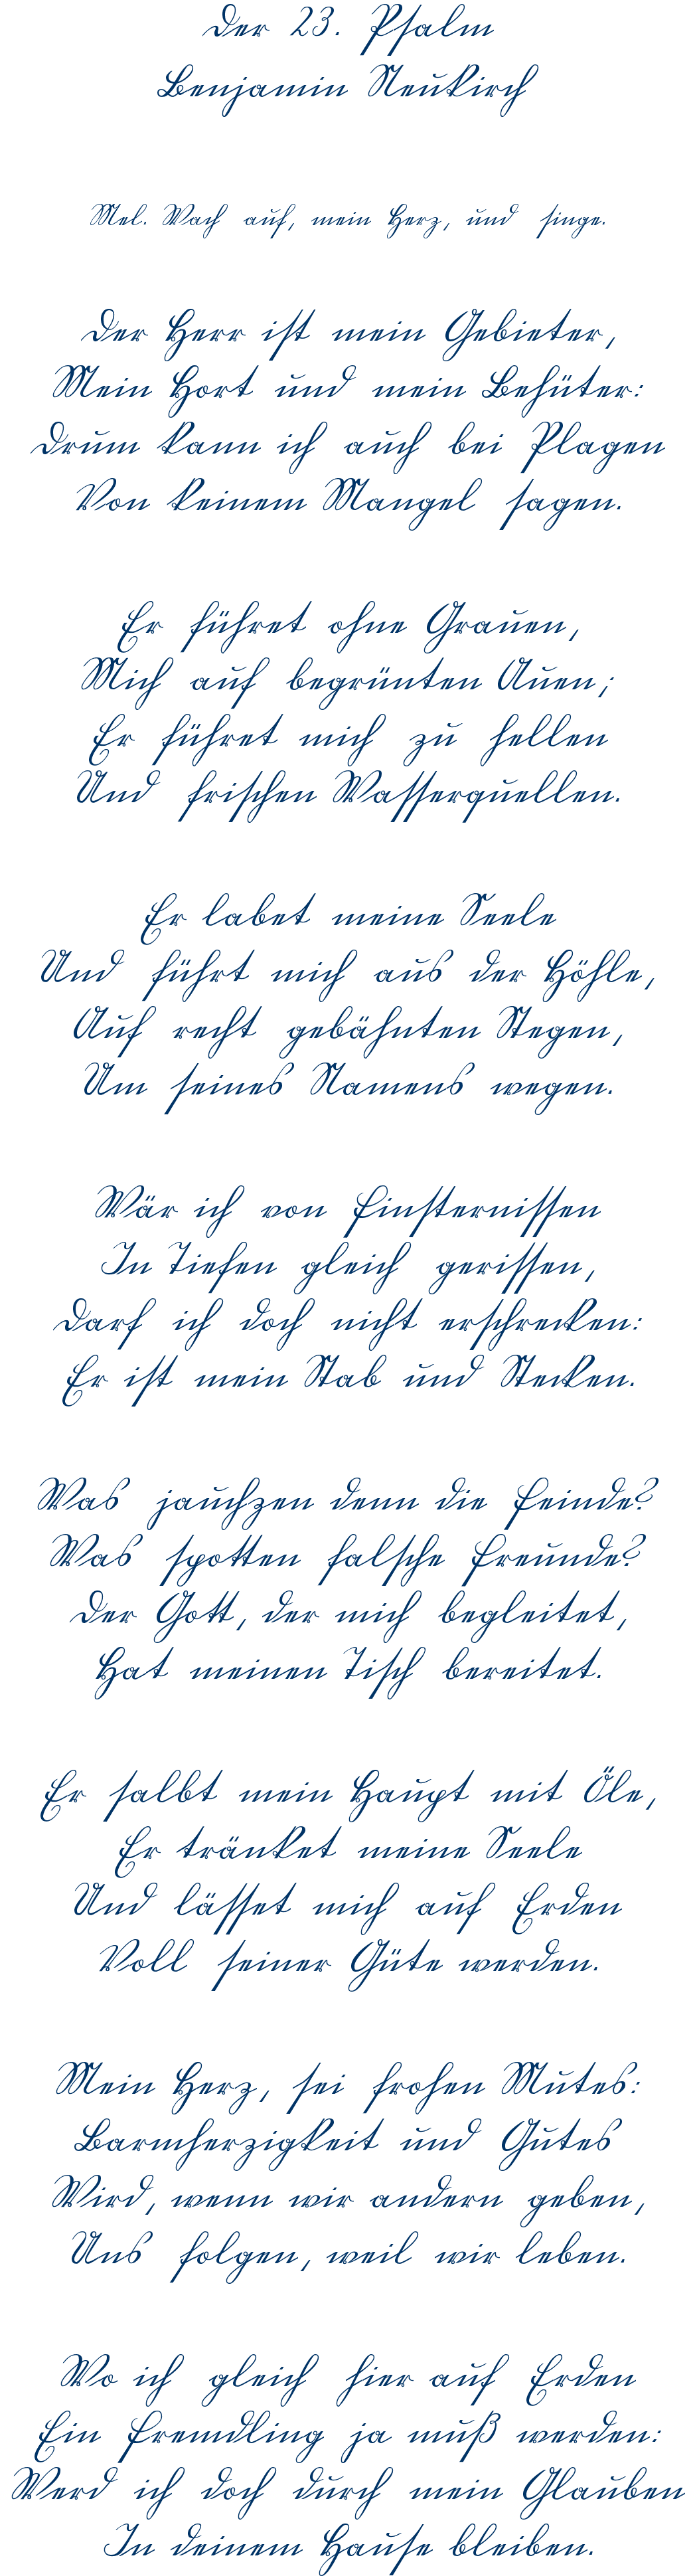 Der 23. Psalm
Benjamin Neukirch
Mel. Wach auf, mein Herz, und singe.
Der Herr ist mein Gebieter,
Mein Hort und mein Behüter:
Drum kann ich auch bei Plagen
Von keinem Mangel sagen.
Er führet ohne Grauen,
Mich auf begrünten Auen;
Er führet mich zu hellen
Und frischen Wasserquellen.
Er labet meine Seele
Und führt mich aus der Höhle,
Auf recht gebähnten Stegen,
Um seines Namens wegen.
Wär ich von Finsternissen
In Tiefen gleich gerissen,
Darf ich doch nicht erschrecken:
Er ist mein Stab und Stecken.
Was jauchzen denn die Feinde?
Was spotten falsche Freunde?
Der Gott, der mich begleitet,
Hat meinen Tisch bereitet.
Er salbt mein Haupt mit Öle,
Er tränket meine Seele
Und lässet mich auf Erden
Voll seiner Güte werden.
Mein Herz, sei frohen Mutes:
Barmherzigkeit und Gutes
Wird, wenn wir andern geben,
Uns folgen, weil wir leben.
Wo ich gleich hier auf Erden
Ein Fremdling ja muß werden:
Werd ich doch durch mein Glauben
In deinem Hause bleiben.